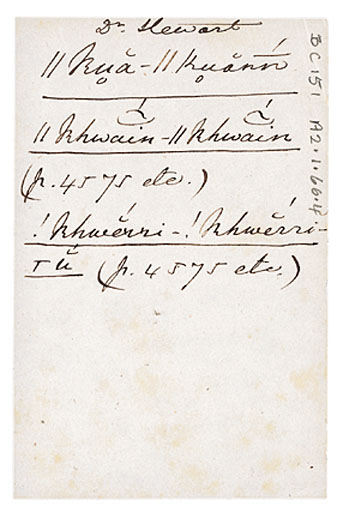 Dr Stewart
||ku̥ă-||ku̥ăṅṅ́
||khwãin-||khwã́in
(p. 4575 etc.)
!khwĕrri-!khwĕ́rri-
rŭ (p. 4575 etc.)
BC 151 A2.1.66.4